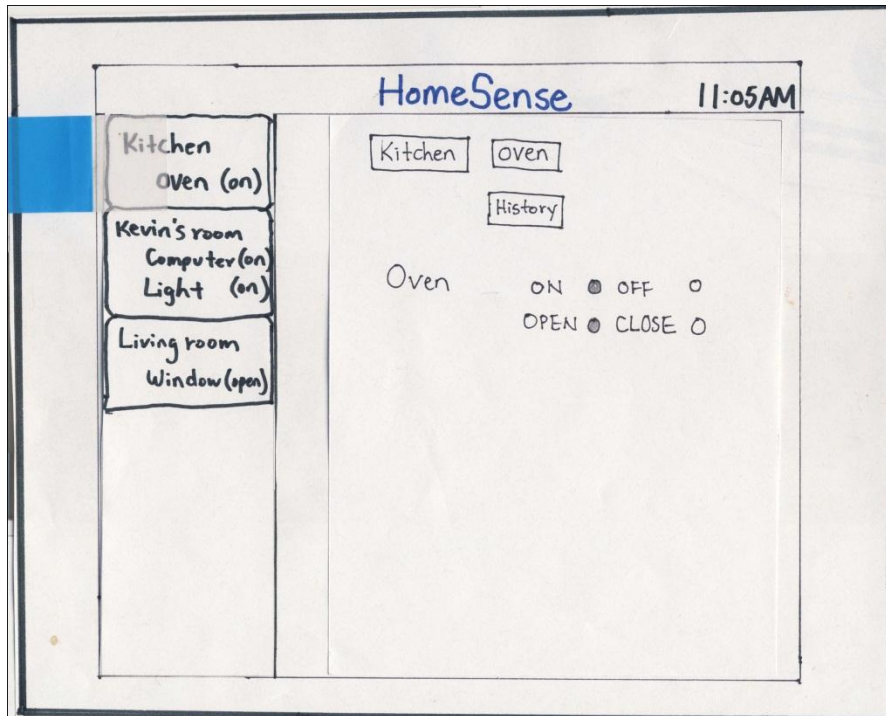 HomeSense
11:05AM
Kitchen
Oven (on)
Kevin's room
Computer (on)
Light (on)
Living room
Window (open)
Kitchen Oven
History
Oven ON OFF
OPEN CLOSE